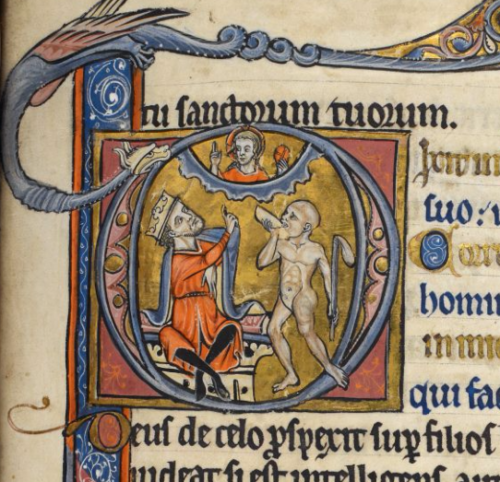 tu sanctorum tuorum.
ixit in
suo: n
Corr
homin
in ini
qui fac
Deus de celo ꝓspexit suꝑ filios
uideat si est intelligens, au